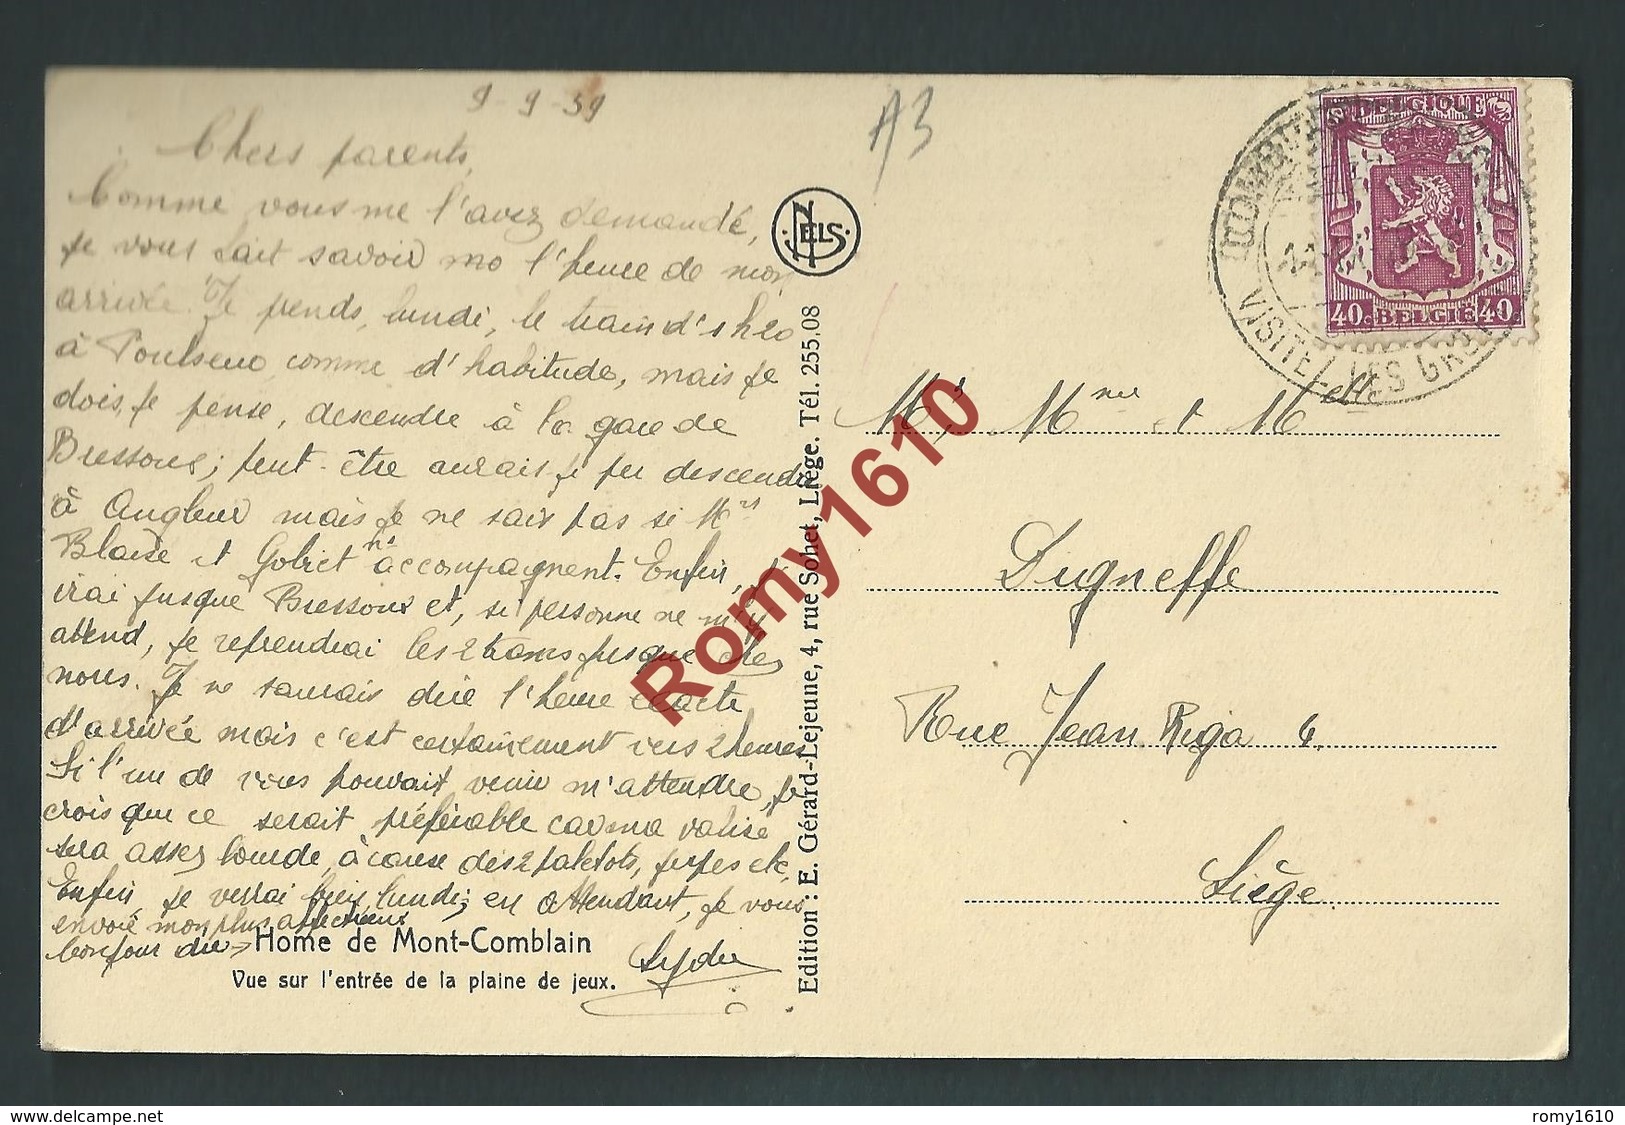 9-9-39
A3
Chers parents,
Comme vous me l'avez demandé,
je vous fait savoir mo l'heure de mon
arrivée. Je prends, lundi, le train d'1h20
à Poulseur comme d'habitude, mais je
dois, je pense, descendre à la gare de
Bressoux; peut-être aurais je pu descendre
à Angleur mais je ne sais pas si Mrs
Blaise et Gobiet n's accompagnent. Enfin, j'
irai jusque Bressoux et, si personne ne m'y
attend, je reprendrai les 2 trams jusque chez
nous. Je ne saurais dire l'heure exacte
d'arrivée mais c'est certainement vers 2 heures
Si l'un de vous pouvait venir m'attendre, je
crois que ce serait préférable car ma valise
sera assez lourde, à cause des 2 paletots, jupes etc.
Enfin, je verrai bien lundi; en attendant, je vous
envoie mon plus affectueux
bonjour du → Home de Mont-Comblain
Lydie
Vue sur l'entrée de la plaine de jeux.
NELS
Edition : E. Gérard-Lejeune, 4, rue Sohet, Liége. Tél. 255.08
BELGIQUE
40c BELGIE 40c
VISITEZ LES
Mr, Mme et Melle
Dugneffe
Rue Jean Riga 6.
Liège.
Romy1610
www.delcampe.net
romy1610